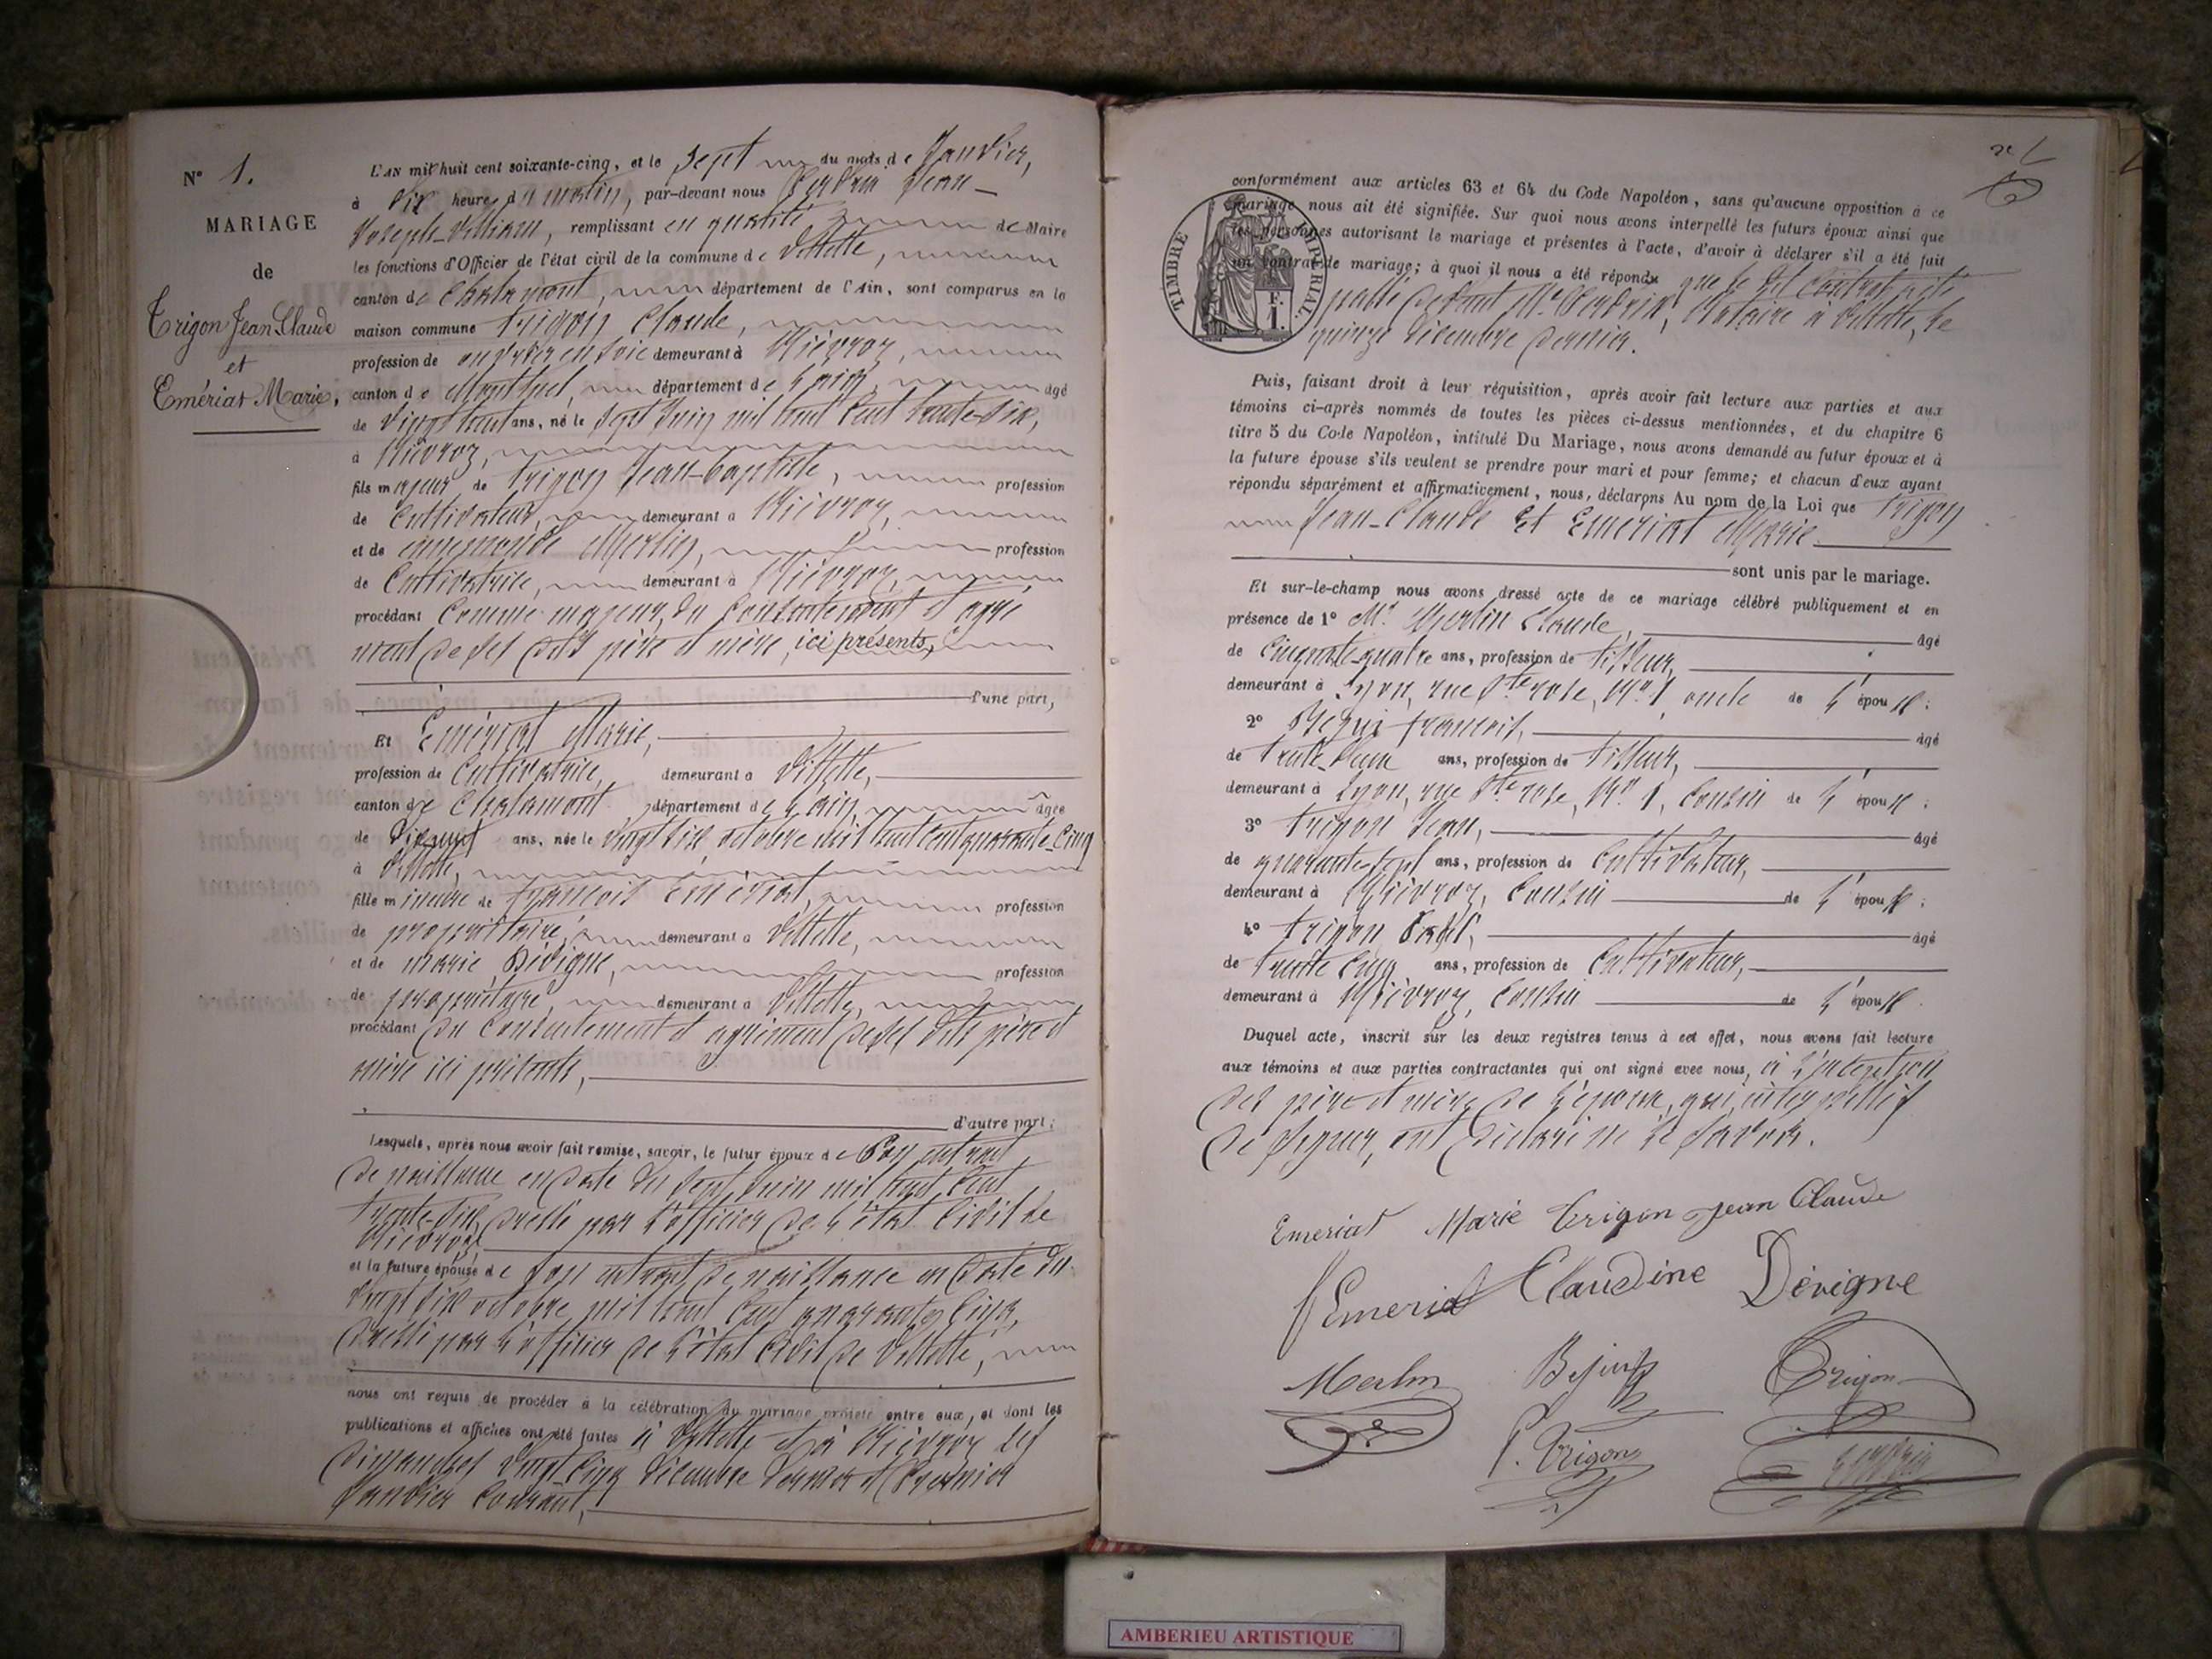 N° 1.
MARIAGE
de
Trigon Jean Claude
et
Emériat Marie,
L'AN mil huit cent soixante-cinq, et le sept du mois de Janvier,
à dix heure du matin, par-devant nous Jean-
Joseph-William, remplissant en qualité de Maire
les fonctions d'Officier de l'état civil de la commune de Villette,
canton de Chalamont, département de l'Ain, sont comparus en la
maison commune Trigon Claude,
profession de ouvrier en soie demeurant à Niévroz,
canton de Montluel, département de l'ain, âgé
de vingt huit ans, né le sept Juin mil huit cent trente-six,
à Niévroz,
fils majeur de Trigon Jean-baptiste, profession
de Cultivateur, demeurant à Niévroz,
et de ennemonde Merlin, profession
de Cultivatrice, demeurant à Niévroz,
procédant Comme majeur, du Consentement et agré
ment de ses dits père et mère, ici présents,
d'une part,
Et Emériat Marie,
profession de Cultivatrice, demeurant à Villette,
canton de Chalamont département de l'ain, âgée
de Dixneuf ans, née le vingt six octobre mil huit Cent quarante-Cinq
à Villette,
fille mineure de françois Emériat, profession
de propriétaire, demeurant à Villette,
et de marie Dévigne, profession
de propriétaire, demeurant à Villette,
procédant du Consentement et agrément de ses dits père et
mère ici présents,
d'autre part;
Lesquels, après nous avoir fait remise, savoir, le futur époux de Son extrait
de naissance en date du sept Juin mil huit Cent
trente-six, dressé par l'officier de l'état Civil de
Niévroz,
et la future épouse de son extrait de naissance en date du
vingt six octobre mil huit Cent quarante Cinq,
dressé par l'officier de l'état Civil de Villette,
nous ont requis de procéder à la célébration du mariage projeté entre eux, et dont les
publications et affiches ont été faites à Villette et à Niévroz les
dimanches vingt-Cinq décembre dernier et premier
Janvier Courant,
conformément aux articles 63 et 64 du Code Napoléon, sans qu'aucune opposition à ce
mariage nous ait été signifiée. Sur quoi nous avons interpellé les futurs époux ainsi que
les personnes autorisant le mariage et présentes à l'acte, d'avoir à déclarer s'il a été fait
un contrat de mariage; à quoi il nous a été répondu que le dit Contrat a été
passé devant Me Notaire à Villette, le
quinze décembre dernier.
TIMBRE IMPERIAL.
Puis, faisant droit à leur réquisition, après avoir fait lecture aux parties et aux
témoins ci-après nommés de toutes les pièces ci-dessus mentionnées, et du chapitre 6
titre 5 du Code Napoléon, intitulé Du Mariage, nous avons demandé au futur époux et à
la future épouse s'ils veulent se prendre pour mari et pour femme; et chacun d'eux ayant
répondu séparément et affirmativement, nous, déclarons Au nom de la Loi que Trigon
Jean-Claude Et Emériat Marie
sont unis par le mariage.
Et sur-le-champ nous avons dressé acte de ce mariage célébré publiquement et en
présence de 1° Mr. Merlin Claude, âgé
de Cinquante-quatre ans, profession de tisseur,
demeurant à Lyon, rue Ste rose, No. 1, oncle de l'époux;
2° françois, âgé
de trente-deux ans, profession de tisseur,
demeurant à Lyon, rue Ste rose, No. 1, Cousin de l'époux;
3° Trigon Jean, âgé
de quarante-sept ans, profession de Cultivateur,
demeurant à Niévroz, Cousin de l'époux;
4° Trigon âgé
de trente Cinq ans, profession de Cultivateur,
demeurant à Niévroz, Cousin de l'époux.
Duquel acte, inscrit sur les deux registres tenus à cet effet, nous avons fait lecture
aux témoins et aux parties contractantes qui ont signé avec nous, à l'exception
des père et mère de l'épouse, qui, interpellés
de signer, ont déclaré ne le savoir.
Emeriat Marie Trigon Jean Claude
Emeriat Claudine Dévigne
Merlin Trigon
Trigon
AMBERIEU ARTISTIQUE